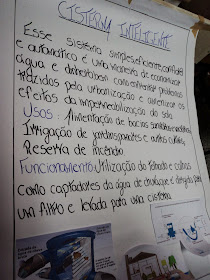 CISTERNA INTELIGENTE
Esse sistema simples, eficiente, confiável
e automático é uma maneira de economizar
água e também como enfrentar problemas
trazidos pela urbanização e amenizar os
efeitos da impermeabilização do solo
Usos: Alimentação de bacias sanitárias
Irrigação de jardins, pastos e outras culturas,
Reserva de incêndio
Funcionamento: Utilização do telhado e calhas
como captadores da água de chuva que é dirigida para
um filtro e levada para uma cisterna.